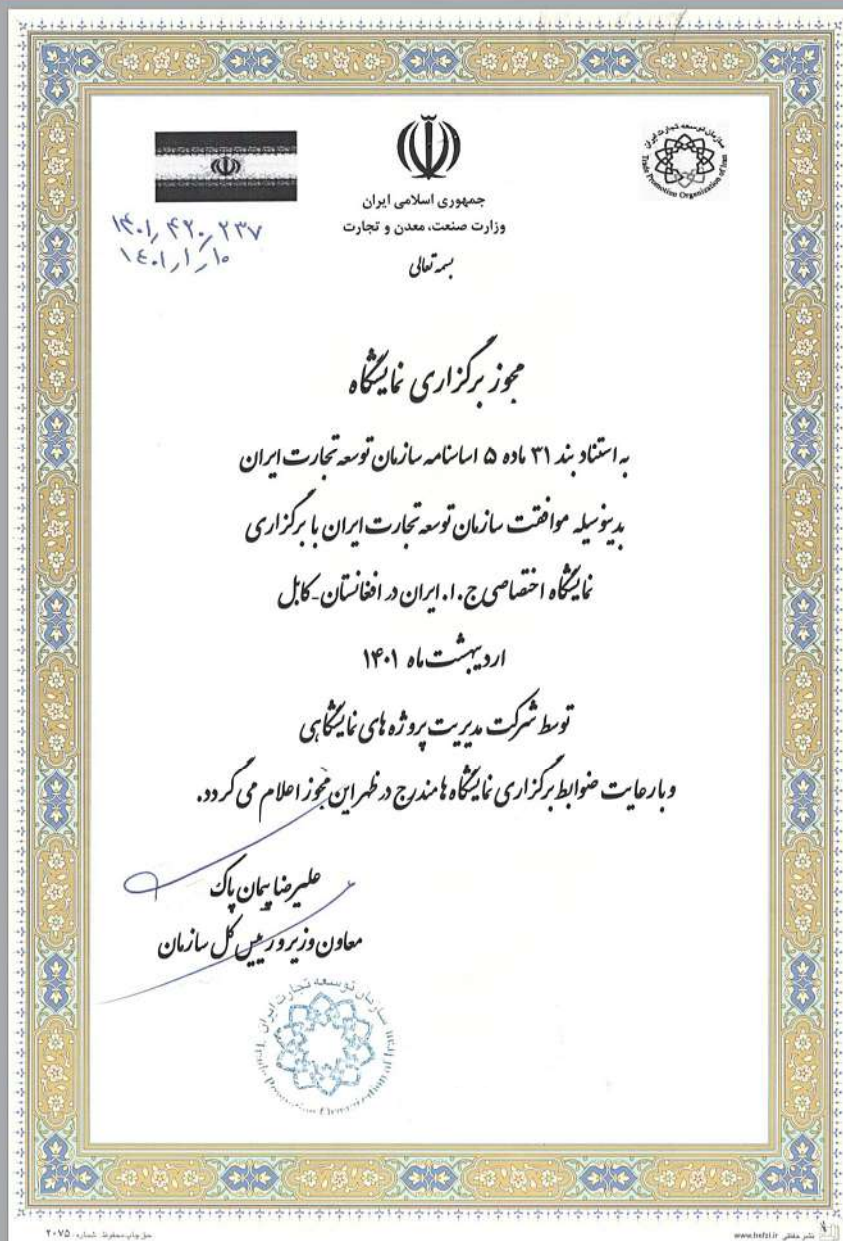 سازمان توسعه تجارت ایران
Trade Promotion Organization of Iran
جمهوری اسلامی ایران
وزارت صنعت، معدن و تجارت
بسمه تعالی
۱۴۰۱٫۴۲۰٫۲۳۷
۱۴۰۱٫۱٫۱۰
مجوز برگزاری نمایشگاه
به استناد بند ۳۱ ماده ۵ اساسنامه سازمان توسعه تجارت ایران
بدینوسیله موافقت سازمان توسعه تجارت ایران با برگزاری
نمایشگاه اختصاصی ج.ا.ایران در افغانستان-کابل
اردیبهشت ماه ۱۴۰۱
توسط شرکت مدیریت پروژه های نمایشگاهی
و با رعایت ضوابط برگزاری نمایشگاه ها مندرج در ظهر این مجوز اعلام می گردد.
علیرضا پیمان پاک
معاون وزیر و رییس کل سازمان
سازمان توسعه تجارت ایران
Trade Promotion Organization of Iran
نشر حفظی www.hefzi.ir
حق چاپ محفوظ شماره: ۲۰۷۵